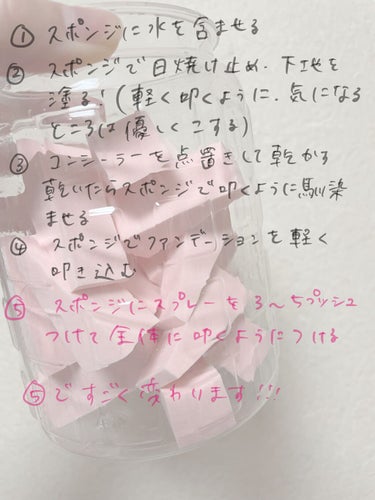 ① スポンジに水を含ませる
② スポンジで日焼け止め、下地を
塗る！(軽く叩くように、気になる
ところは優しくこする)
③ コンシーラーを点置きして乾かす
乾いたらスポンジで叩くように馴染
ませる
④ スポンジでファンデーションを軽く
叩き込む
⑤ スポンジにスプレーを3〜5プッシュ
つけて全体に叩くようにつける
⑤ですごく変わります!!!